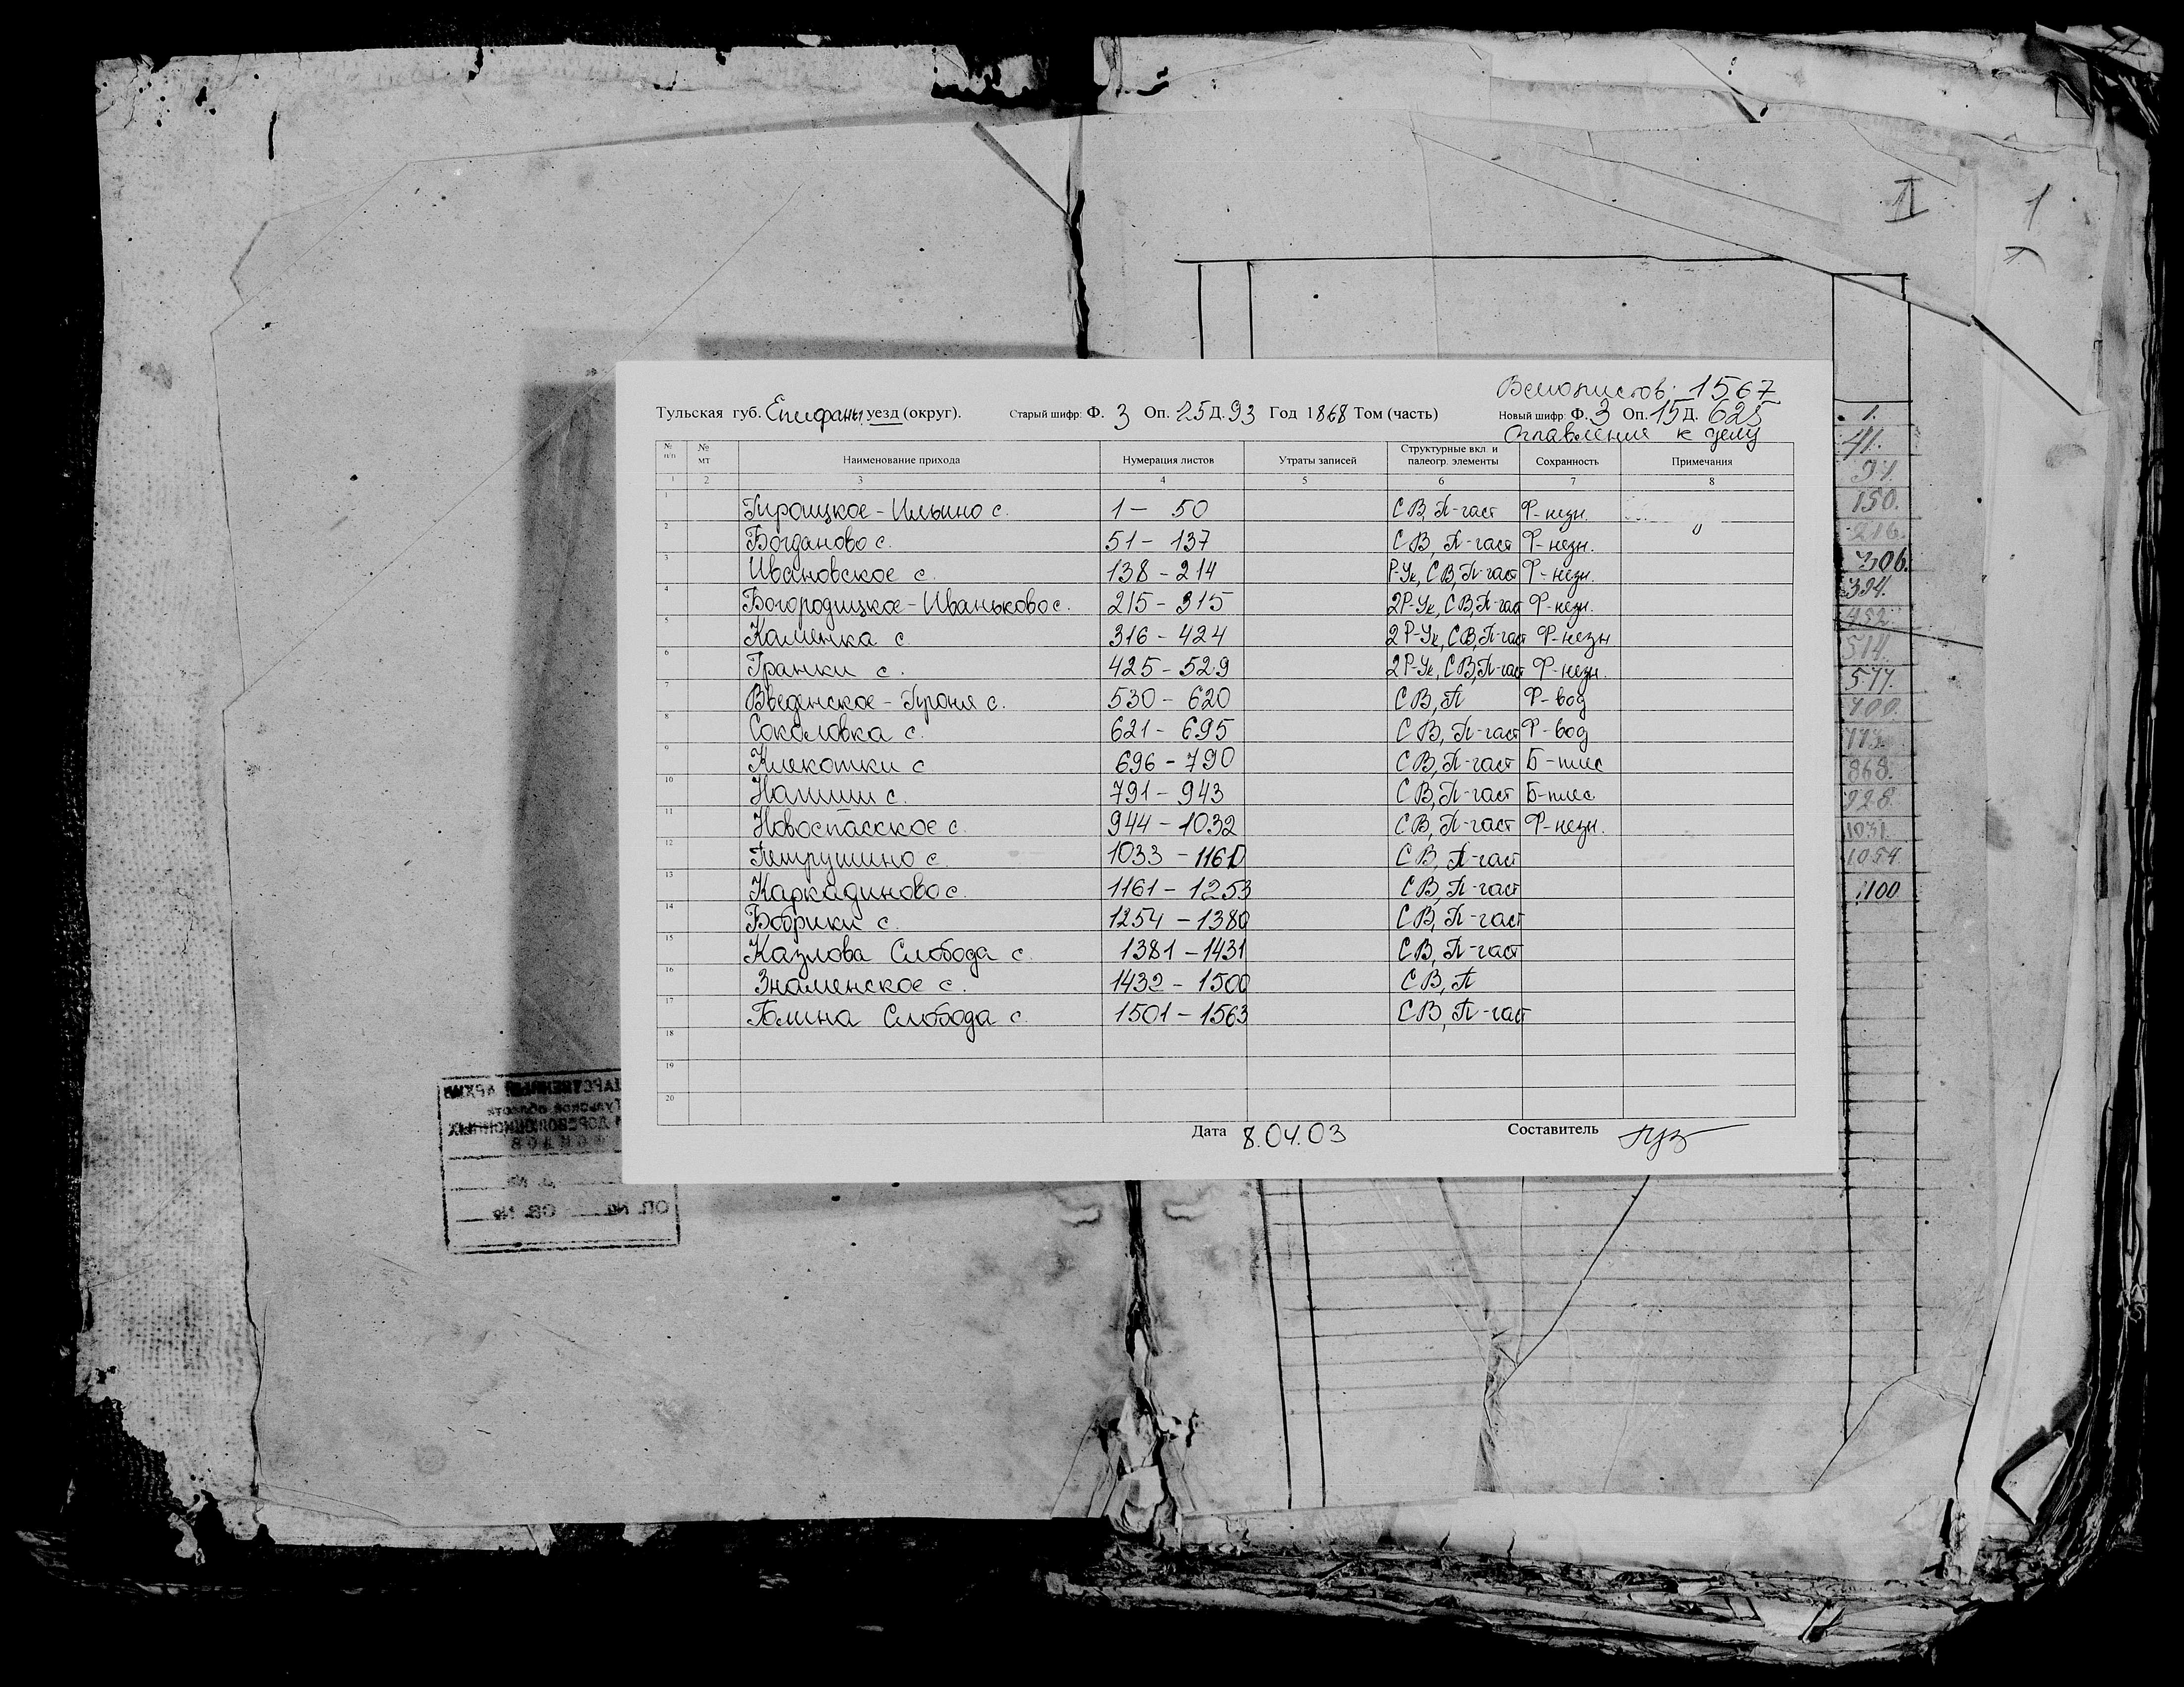 II 1
Всего листов: 1567
Тульская губ. Епифань уезд (округ). Старый шифр: Ф. 3 Оп. 25 Д. 93 Год 1868 Том (часть) Новый шифр: Ф. 3 Оп. 15 Д. 625
Оглавления к делу
№ п/п № мт Наименование прихода Нумерация листов Утраты записей Структурные вкл. и палеогр. элементы Сохранность Примечания
1 2 3 4 5 6 7 8
1 Троицкое-Ильино с. 1 – 50 СВ, П-част Ф-незн.
2 Богданово с. 51 – 137 СВ, П-част Ф-незн.
3 Ивановское с. 138 – 214 Р-Ук, СВ, П-част Ф-незн.
4 Богородицкое-Иваньково с. 215 – 315 2Р-Ук, СВ, П-част Ф-незн.
5 Каменка с. 316 – 424 2Р-Ук, СВ, П-част Ф-незн
6 Гранки с. 425 – 529 2Р-Ук, СВ, П-част Ф-незн.
7 Введенское-Проня с. 530 – 620 СВ, П Ф-вод
8 Соколовка с. 621 – 695 СВ, П-част Ф-вод
9 Клекотки с 696 – 790 СВ, П-част Б-плес
10 с. 791 – 943 СВ, П-част Б-плес
11 Новоспасское с. 944 – 1032 СВ, П-част Ф-незн.
12 Петрушино с. 1033 – 1160 СВ, П-част
13 Каркадиново с. 1161 – 1253 СВ, П-част
14 Бобрики с. 1254 – 1380 СВ, П-част
15 Казлова Слобода с. 1381 – 1431 СВ, П-част
16 Знаменское с. 1432 – 1500 СВ, П
17 Слобода с. 1501 – 1563 СВ, П-част
18
19
20
Дата 8.04.03 Составитель
1.
41.
150.
216.
306.
394.
452.
514.
577.
700.
773.
868.
928.
1031.
1054.
1100
АРХИВ
Тульской области
ДОРЕВОЛЮЦИОННЫХ
ОП. № СВ. №